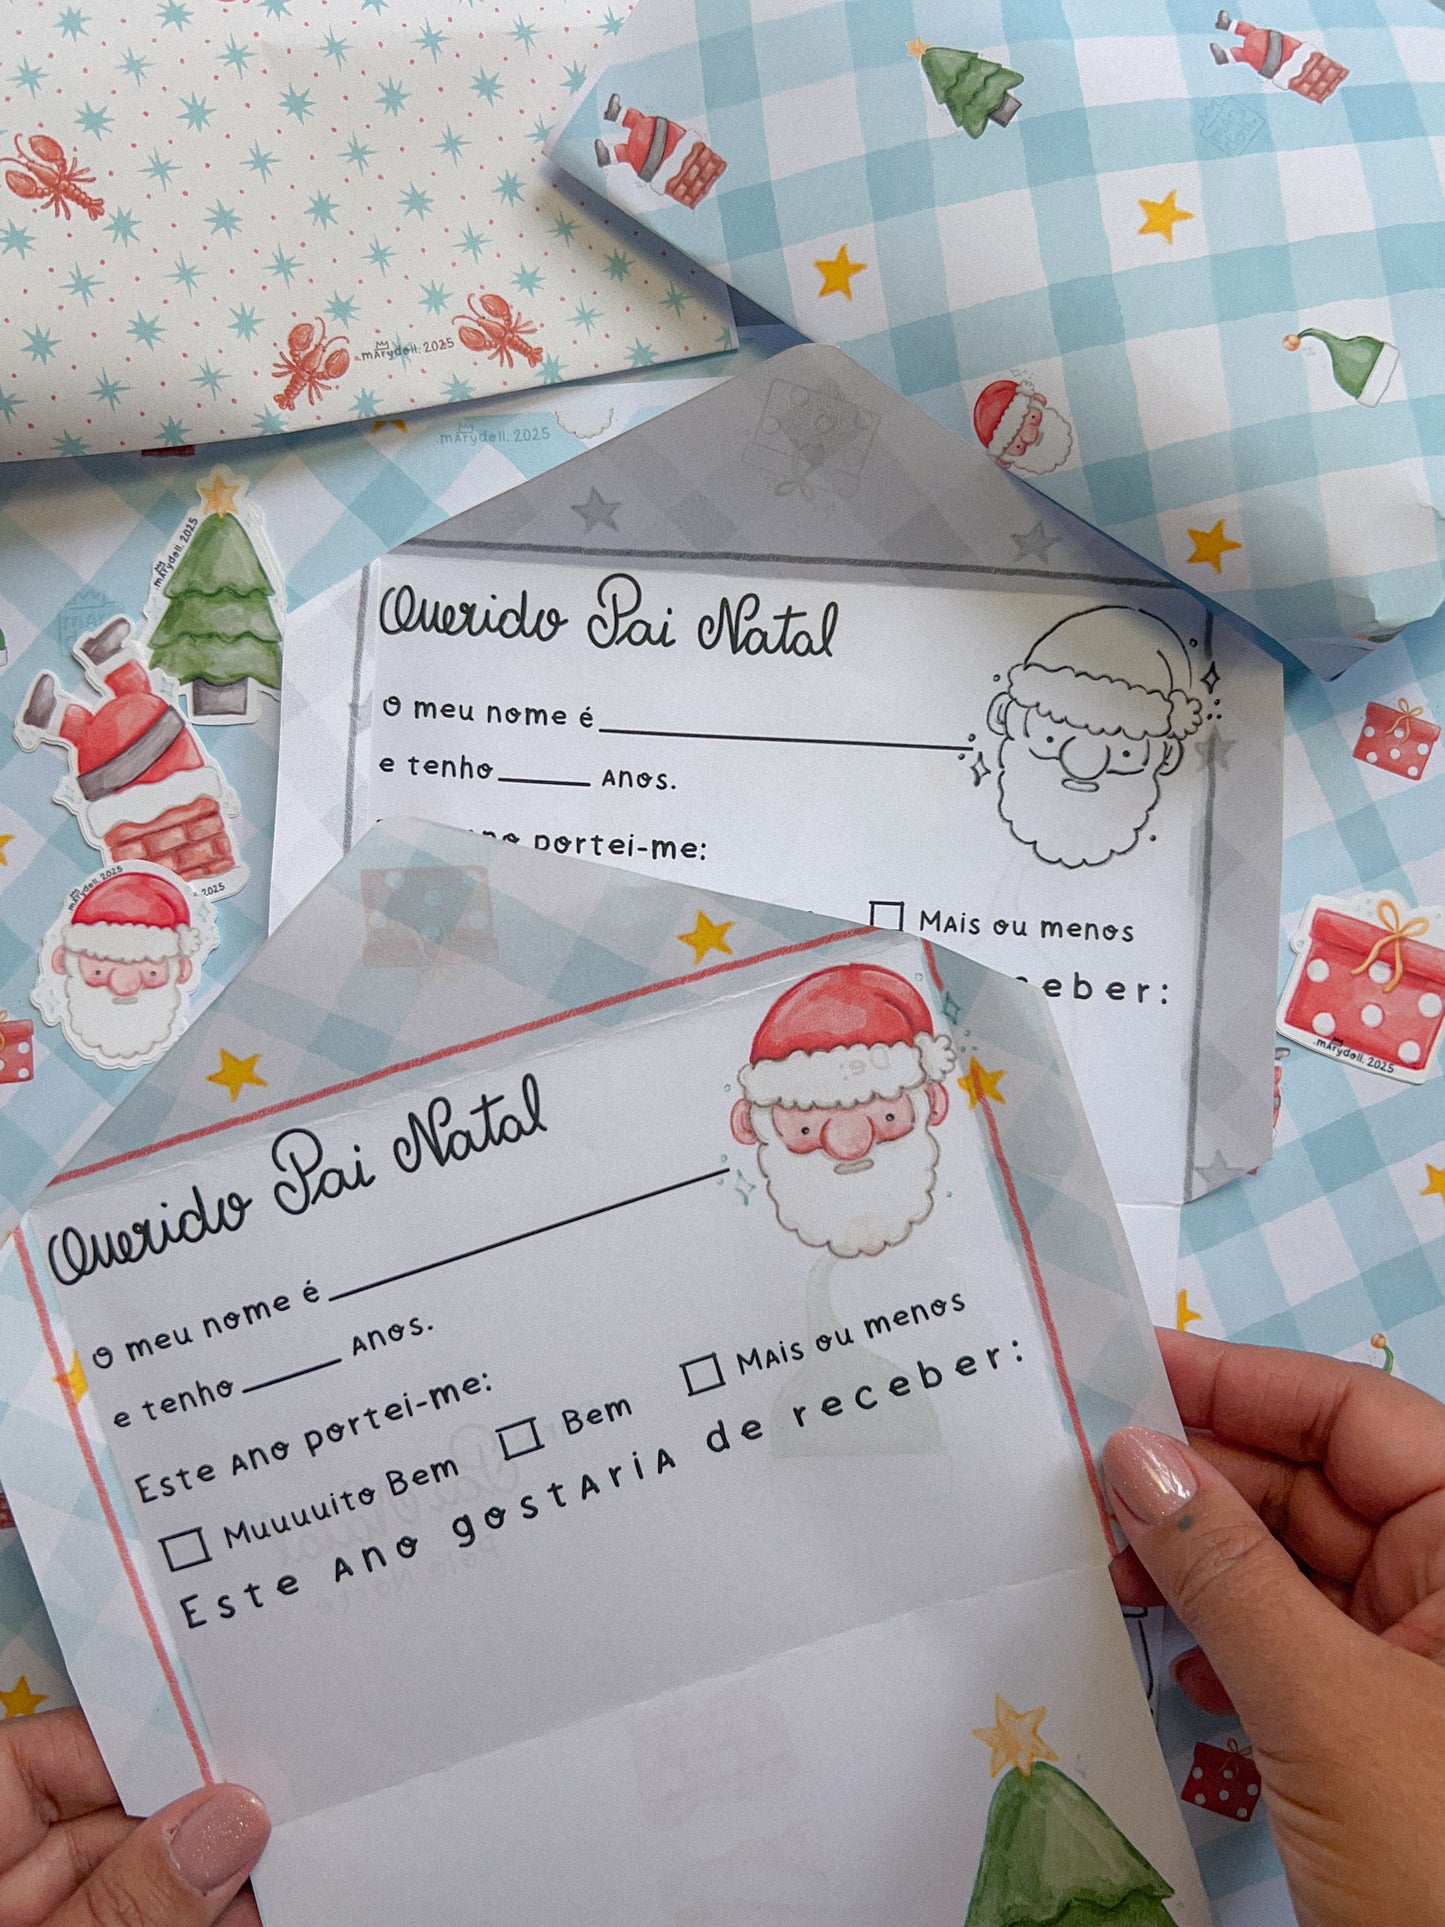 .mArydoll. 2025
.mArydoll. 2025
.mArydoll. 2025
Querido Pai Natal
O meu nome é
e tenho ANOS.
portei-me:
MAis ou menos
eber:
.mArydoll. 2025
2025
Querido Pai Natal
O meu nome é
e tenho ANOS.
Este ANO portei-me:
Muuuuito Bem Bem MAis ou menos
Este ANO gostAriA de receber:
.mArydoll. 2025